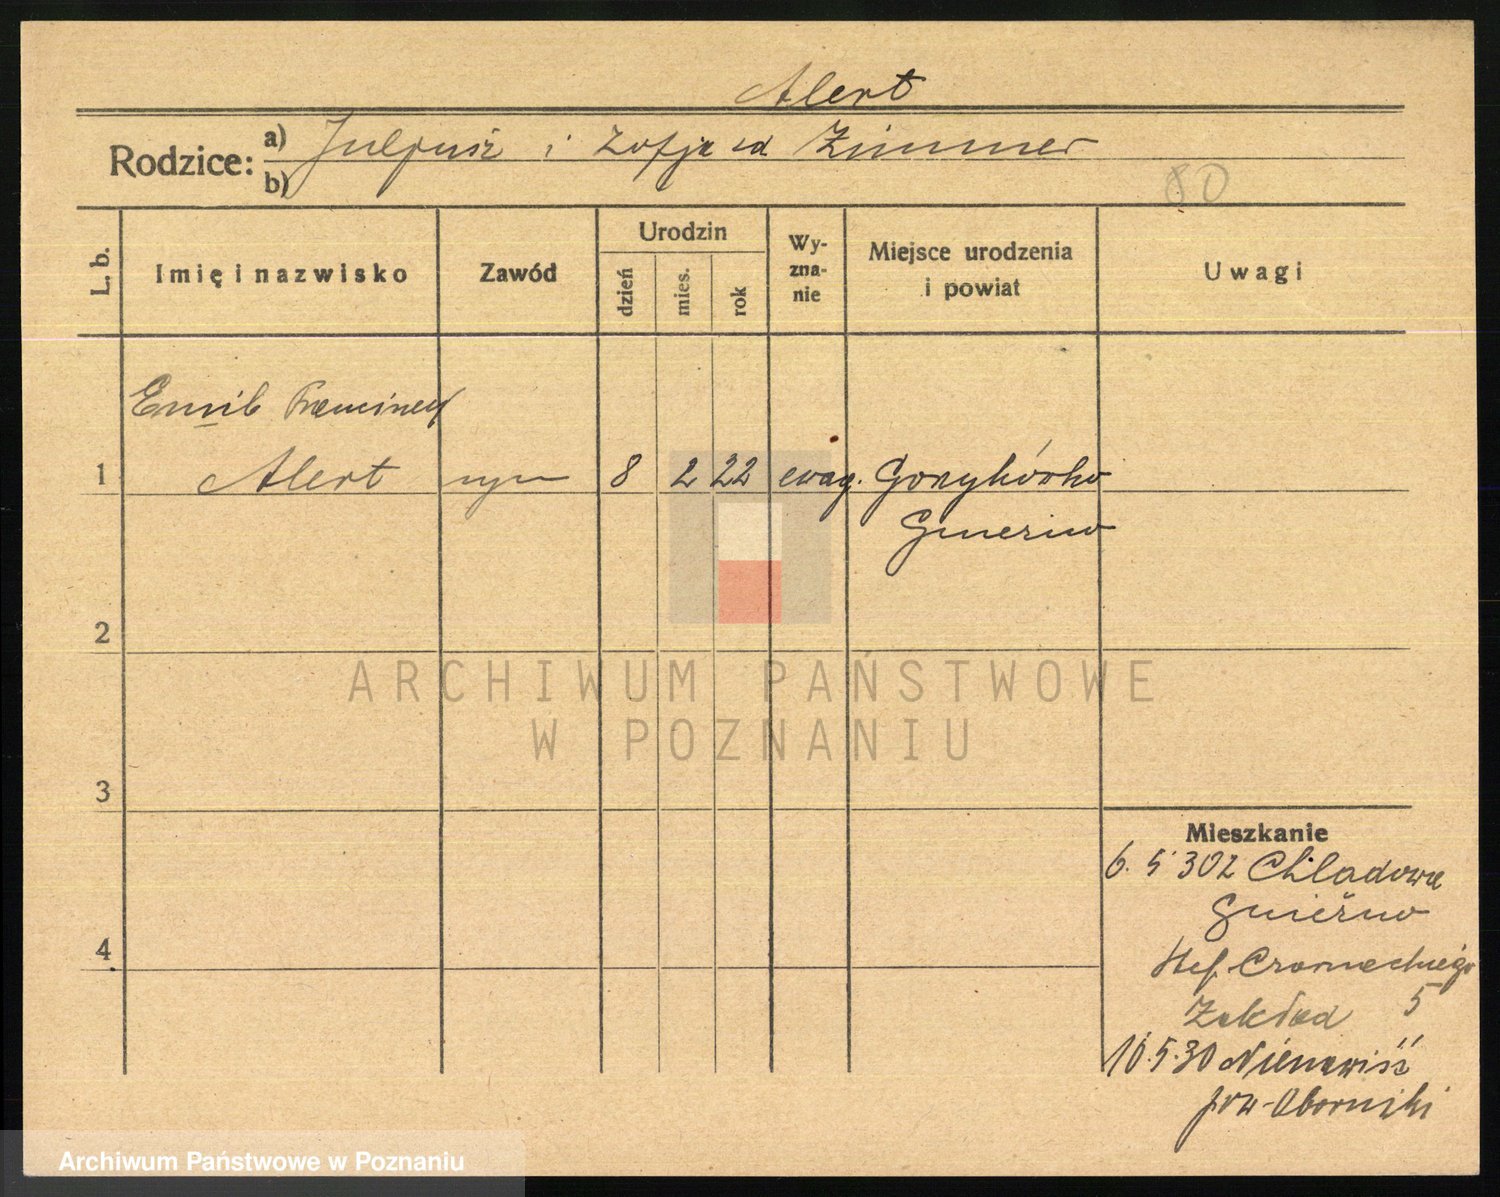 Alert
Rodzice: a) Juljusz i Zofja zd Zimmer
b)
80
L. b. Imię i nazwisko Zawód Urodzin dzień mies. rok Wyznanie Miejsce urodzenia i powiat Uwagi
Emil
1 Alert syn 8 2 22 ewag.
Gniezno
2
3
4
Mieszkanie
6. 5 30 z Chladowa
Gniezno
Stef. Czarneckiego
Zakład 5
10.5.30 Nienawiść
pow. Oborniki
ARCHIWUM PAŃSTWOWE
W POZNANIU
Archiwum Państwowe w Poznaniu